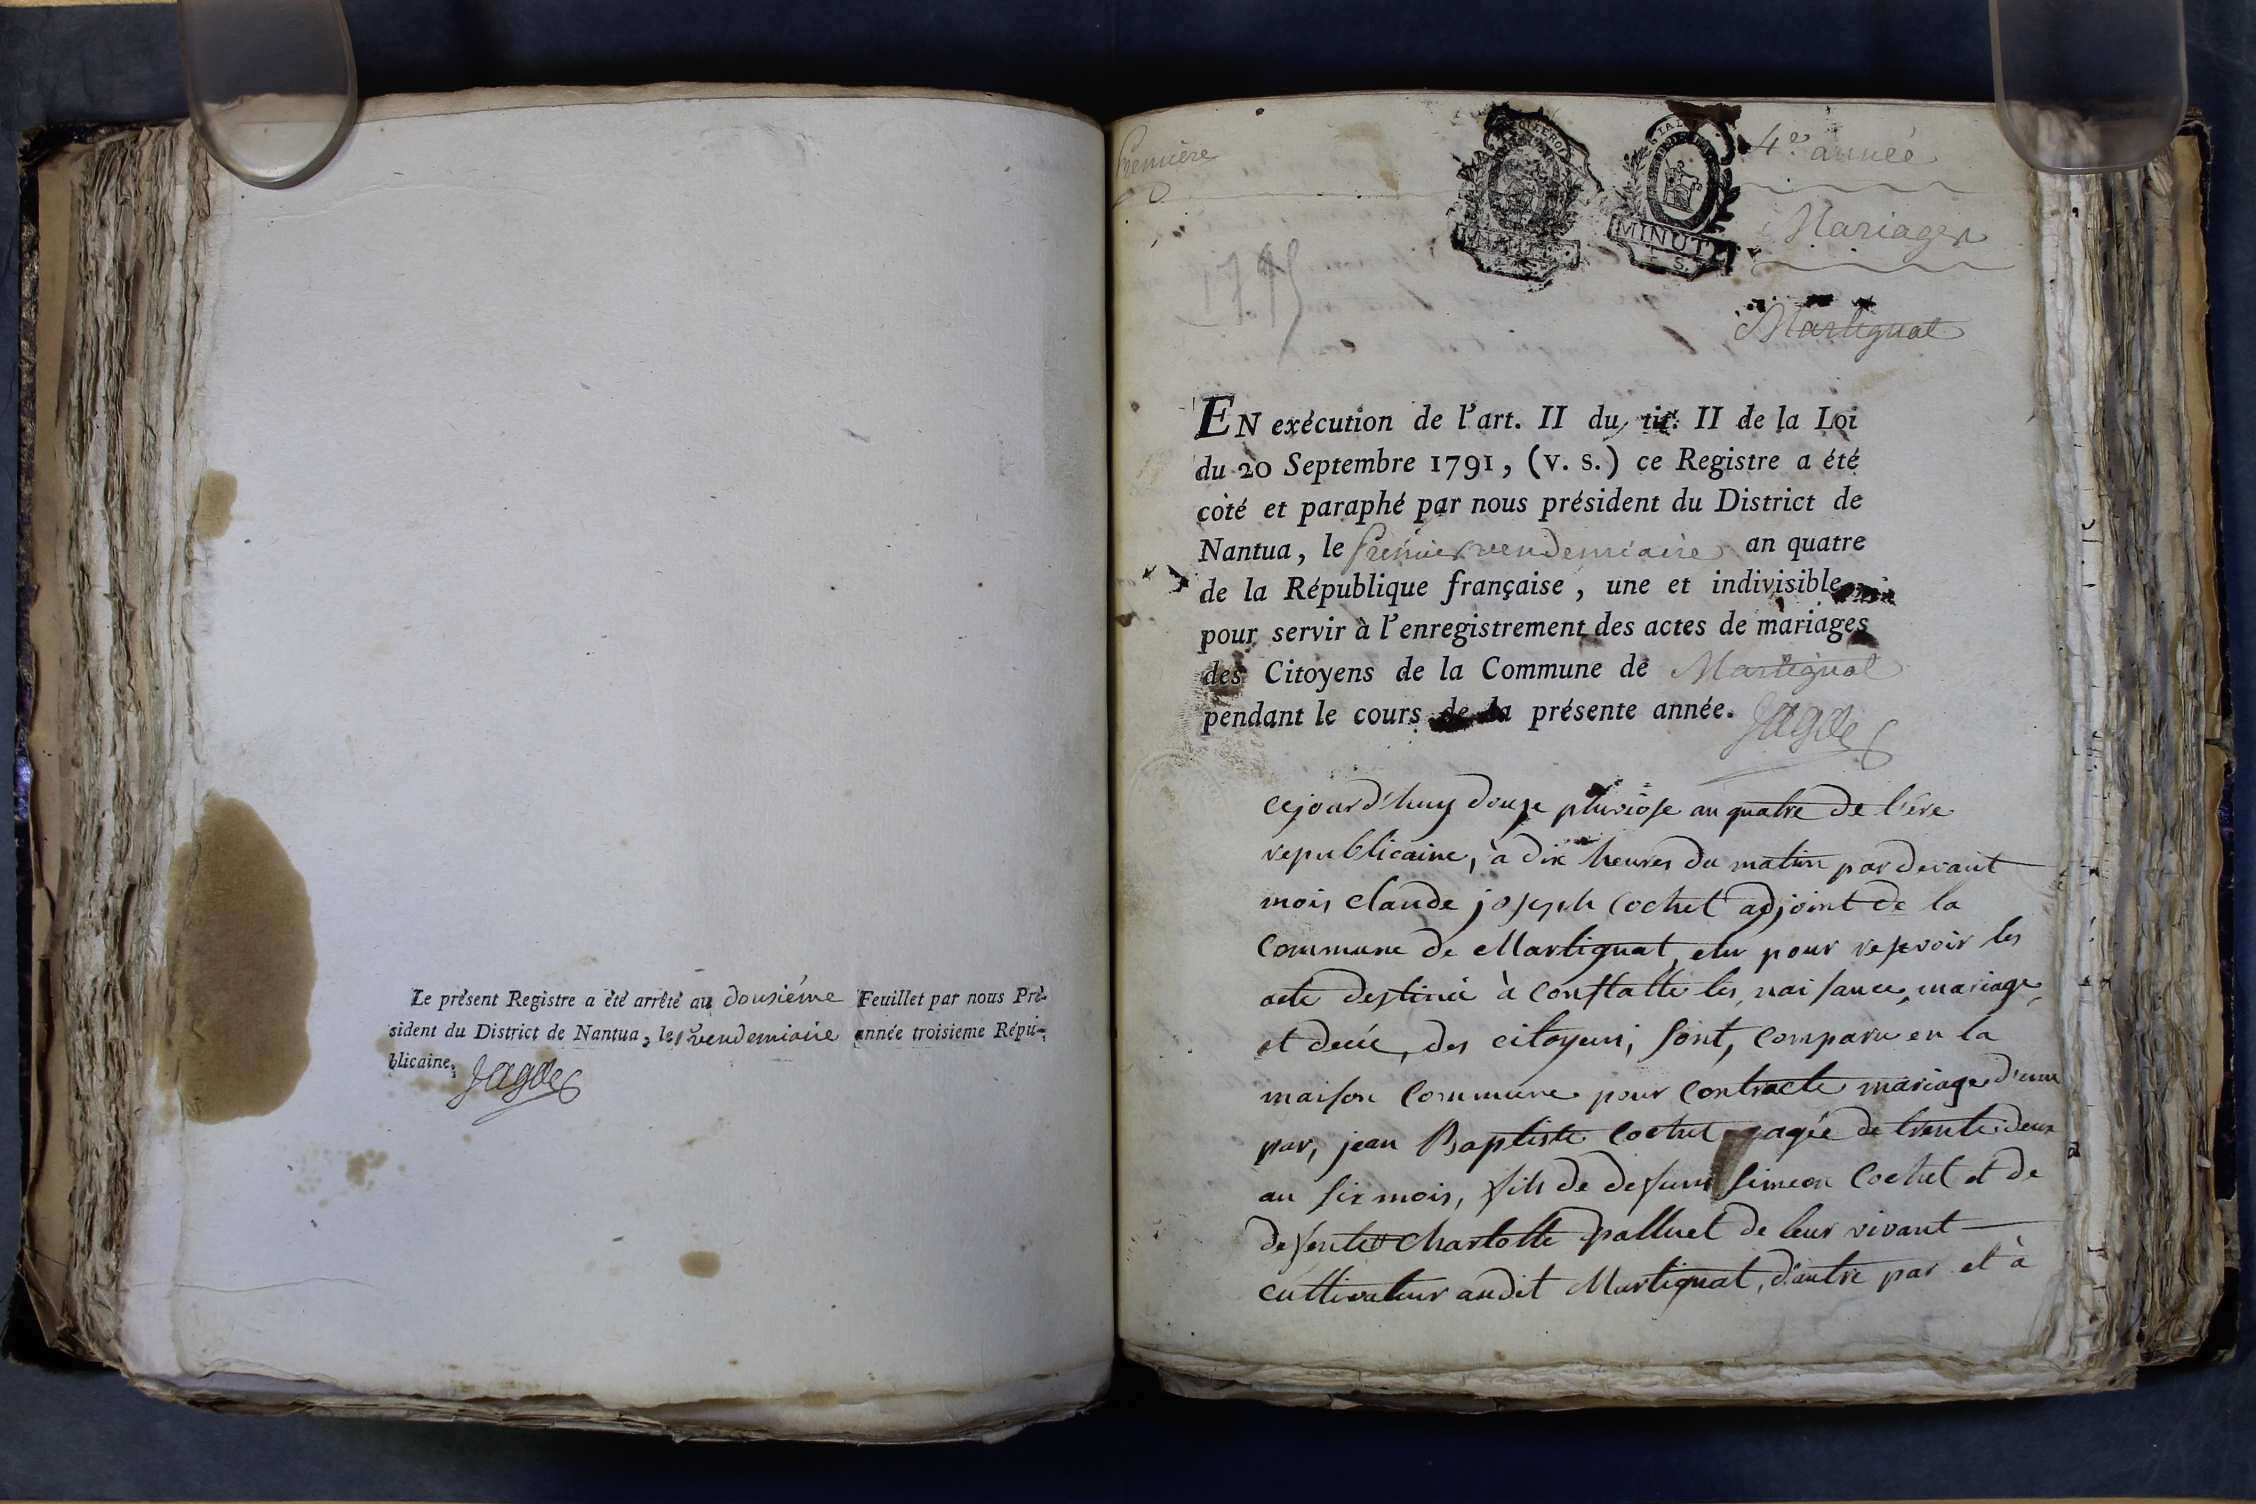 Le présent Registre a été arrêté au douxiéme Feuillet par nous Pré-
sident du District de Nantua, le 1er vendemiaire année troisieme Répu-
blicaine.
Jagot
Première
4e année
Mariages
MINUT
S.
Martignat
EN exécution de l'art. II du tit. II de la Loi
du 20 Septembre 1791, (v. s.) ce Registre a été
coté et paraphé par nous président du District de
Nantua, le premier vendemiaire an quatre
de la République française, une et indivisible
pour servir à l'enregistrement des actes de mariages
des Citoyens de la Commune de Martignat
pendant le cours de la présente année.
cejourd'huy douze pluviose an quatre de l'ére
republicaine, à dix heures du matin par devant
mois claude joseph Cochet adjoint de la
commune de Martignat, elu pour resevoir les
acte destinée à constatte les naisance, mariage,
et decé, des citoyens, sont, comparu en la
maison commune pour contracte mariage d'une
par, jean Baptiste Cochet agée de trente deux
an six mois, fils de defunt simeon Cochet et de
defente Charlotte palluet de leur vivant
cultivateur audit Martignat, d'autre par et à